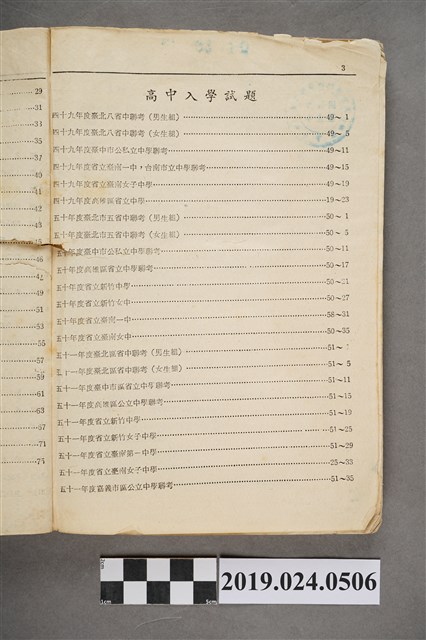 29
31
31
35
37
39
41
42
43
45
46
47
49
51
53
55
57
59
61
63
67
71
75
3
高中入學試題
四十九年度臺北八省中聯考（男生組）49～1
四十九年度臺北八省中聯考（女生組）49～5
四十九年度臺中市公私立中學聯考49～11
四十九年度省立臺南一中，台南市立中學聯考49～15
四十九年度省立臺南女子中學49～19
四十九年度高雄區省立中學19～23
五十年度臺北市五省中聯考（男生組）50～1
五十年度臺北市五省中聯考（女生組）50～5
五十年度臺中市公私立中學聯考50～11
五十年度高雄區省立中學聯考50～17
五十年度省立新竹中學50～21
五十年度省立新竹女中50～27
五十年度省立臺南一中58～31
五十年度省立臺南女中50～35
五十一年度臺北區省中聯考（男生組）51～
五十一年度臺北區省中聯考（女生組）51～5
五十一年度臺中市區省立中學聯考51～11
五十一年度高雄區公立中學聯考51～15
五十一年度省立新竹中學51～19
五十一年度省立新竹女子中學51～25
五十一年度省立臺南第一中學51～29
五十一年度省立臺南女子中學25～33
五十一年度嘉義市區公立中學聯考51～35
1cm
5cm
2019.024.0506